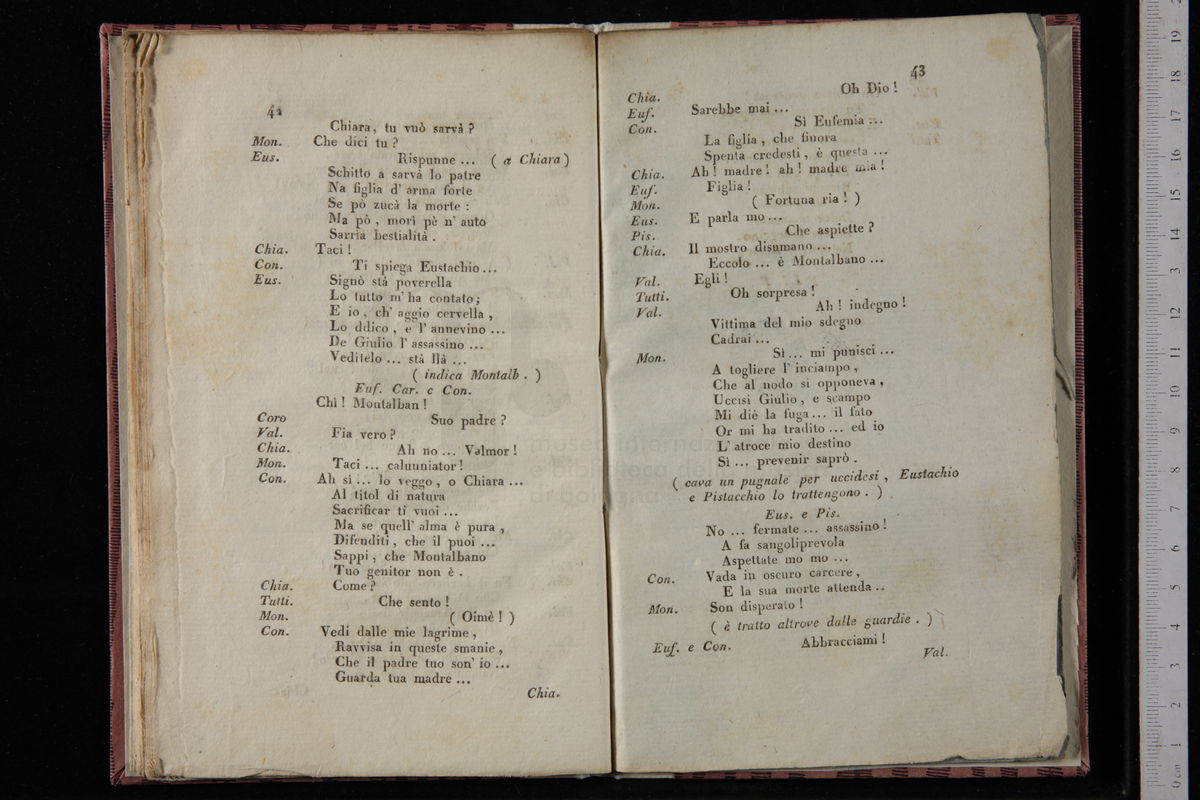 42
Chiara, tu vuò sarvà ?
Mon. Che dici tu ?
Eus. Rispunne ... ( a Chiara )
Schitto a sarvà lo patre
Na figlia d' arma forte
Se pò zucà la morte :
Ma pò, morì pè n' auto
Sarria bestialità .
Chia. Taci !
Con. Ti spiega Eustachio ...
Eus. Signò stà poverella
Lo tutto m' ha contato ;
E io, ch' aggio cervella ,
Lo ddico , e l' annevino ...
De Giulio l' assassino ...
Veditelo ... stà llà ...
( indica Montalb . )
Euf. Car. e Con.
Chi ! Montalban !
Coro Suo padre ?
Val. Fia vero ?
Chia. Ah no ... Valmor !
Mon. Taci ... calunniator !
Con. Ah sì ... lo veggo , o Chiara ...
Al titol di natura
Sacrificar ti vuoi ...
Ma se quell' alma è pura ,
Difenditi , che il puoi ...
Sappi , che Montalbano
Tuo genitor non è .
Chia. Come ?
Tutti. Che sento !
Mon. ( Oimè ! )
Con. Vedi dalle mie lagrime ,
Ravvisa in queste smanie ,
Che il padre tuo son' io ...
Guarda tua madre ...
Chia.
43
Chia. Oh Dio !
Euf. Sarebbe mai ...
Con. Sì Eufemia ...
La figlia , che finora
Spenta credesti , è questa ...
Chia. Ah ! madre ! ah ! madre mia !
Euf. Figlia !
Mon. ( Fortuna ria ! )
Eus. E parla mo ...
Pis. Che aspiette ?
Chia. Il mostro disumano ...
Eccolo ... è Montalbano ...
Val. Egli !
Tutti. Oh sorpresa !
Val. Ah ! indegno !
Vittima del mio sdegno
Cadrai ...
Mon. Sì ... mi punisci ...
A togliere l' inciampo ,
Che al nodo si opponeva ,
Uccisi Giulio , e scampo
Mi diè la fuga ... il fato
Or mi ha tradito ... ed io
L' atroce mio destino
Sì ... prevenir saprò .
( cava un pugnale per uccidesi , Eustachio
e Pistacchio lo trattengono . )
Eus. e Pis.
No ... fermate ... assassino !
A fa sangoliprevola
Aspettate mo mo ...
Con. Vada in oscuro carcere ,
E la sua morte attenda ..
Mon. Son disperato !
( è tratto altrove dalle guardie . )
Euf. e Con. Abbracciami !
Val.